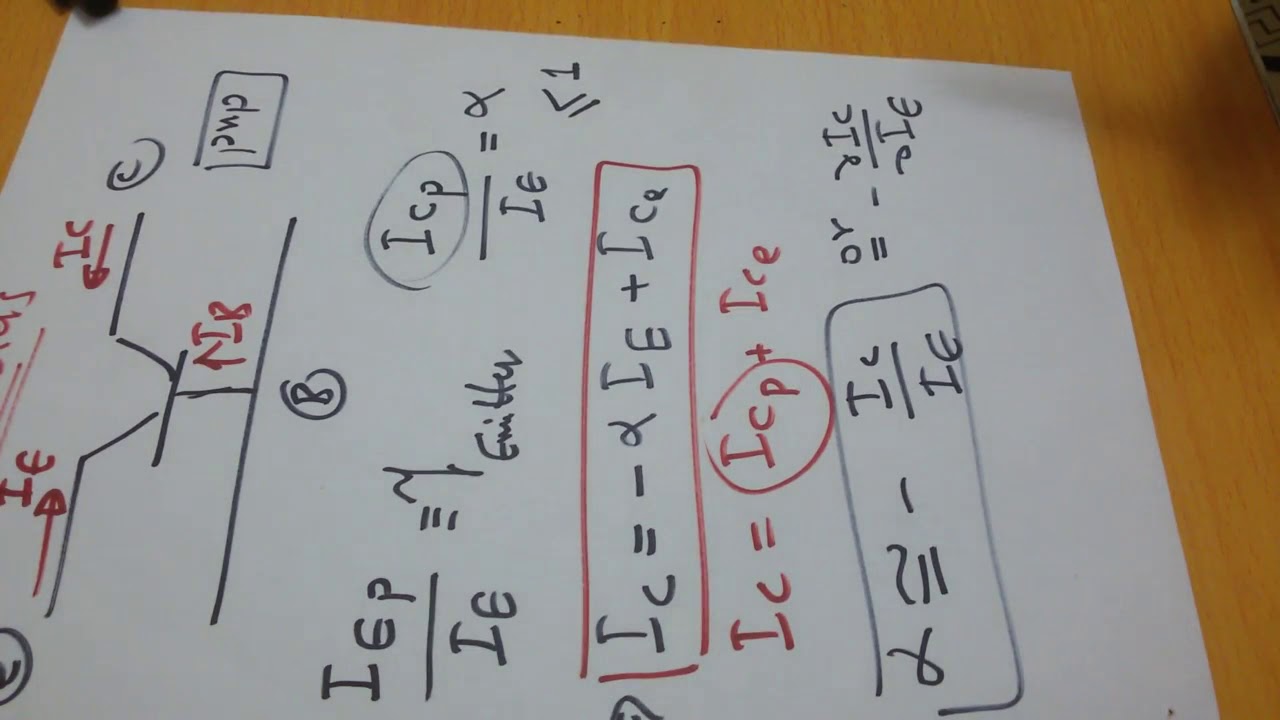 pnp
C
I_C
I_B
B
I_E
E
I_Ep / I_E ≡ γ Emitter
I_Cp / I_E = α ≤ 1
I_C = - α I_E + I_Co
I_C = I_Cp + I_Co
α ≅ - I_C / I_E
or = - ∂I_C / ∂I_E